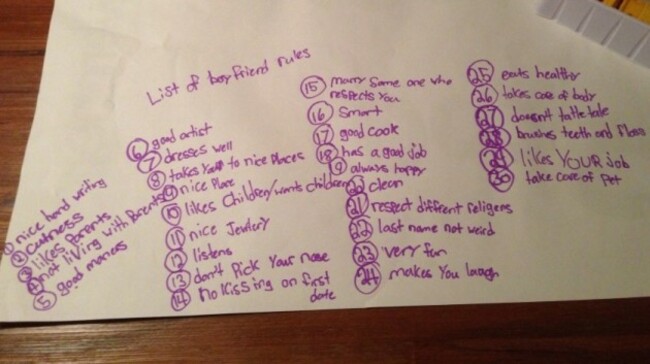 List of boyfriend rules
① nice hand writing
② cuttness
③ likes parents
④ not living with Parents
⑤ good maners
⑥ good artist
⑦ dresses well
⑧ takes You to nice Places
⑨ nice Place
⑩ likes Children/wants children
⑪ nice Jewlery
⑫ listens
⑬ don't Pick Your nose
⑭ no kissing on first
date
⑮ marry some one who
respects You
⑯ Smart
⑰ good cook
⑱ has a good job
⑲ always happy
⑳ clean
㉑ respect diffrent religens
㉒ last name not weird
㉓ very fun
㉔ makes You laugh
㉕ eats healthy
㉖ takes care of body
㉗ doesn't tattetale
㉘ brushes teeth and floss
㉙ likes YOUR job
㉚ take care of Pet